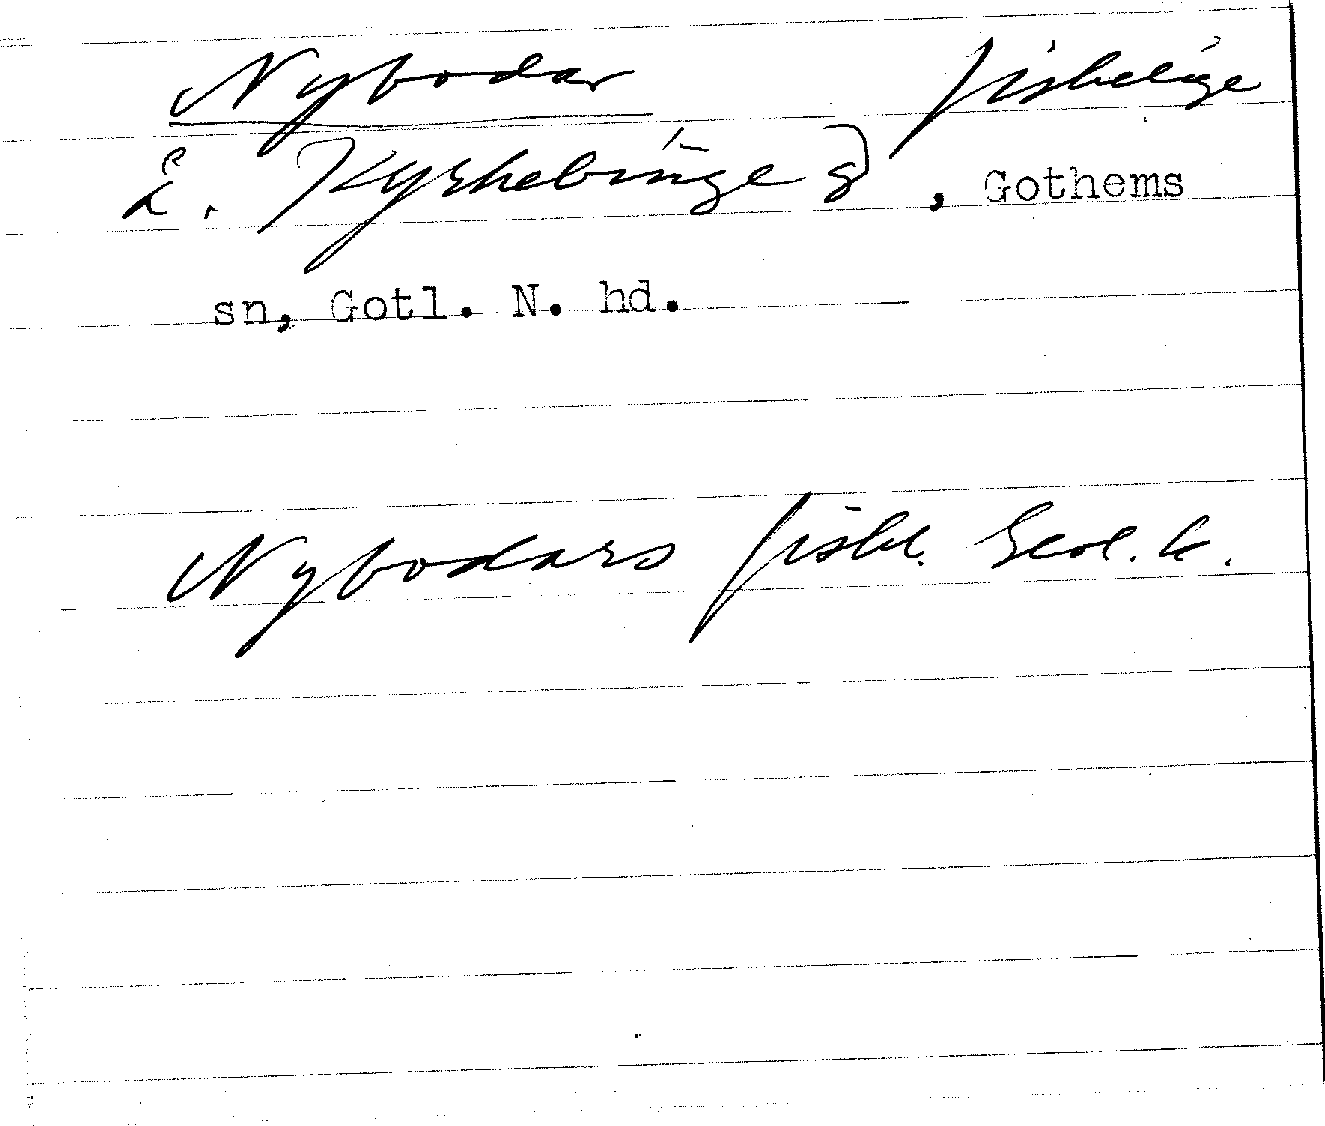 Nybodar fiskeläge
L. Kyrkebinge g), Gothems
sn, Gotl. N. hd.
Nybodars fiskl. Geol. k.